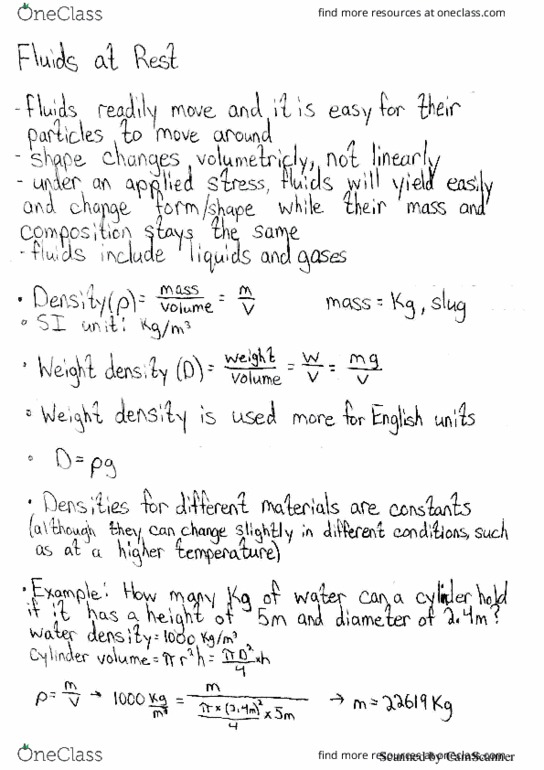 OneClass find more resources at oneclass.com
Fluids at Rest
- fluids readily move and it is easy for their
particles to move around
- shape changes volumetricly, not linearly
- under an applied stress, fluids will yield easily
and change form/shape while their mass and
composition stays the same
- fluids include liquids and gases
• Density (ρ) = mass/volume = m/V mass = Kg, slug
• SI unit: Kg/m³
• Weight density (D) = weight/volume = W/V = mg/V
• Weight density is used more for English units
• D = ρg
• Densities for different materials are constants
(although they can change slightly in different conditions, such
as at a higher temperature)
• Example: How many Kg of water can a cylinder hold
if it has a height of 5m and diameter of 2.4m?
water density = 1000 Kg/m³
Cylinder volume = πr²h = πD²/4 × h
ρ = m/V → 1000 Kg/m³ = m / (π × (2.4m)²/4 × 5m) → m = 22619 Kg
OneClass find more resources at oneclass.com Scanned by CamScanner